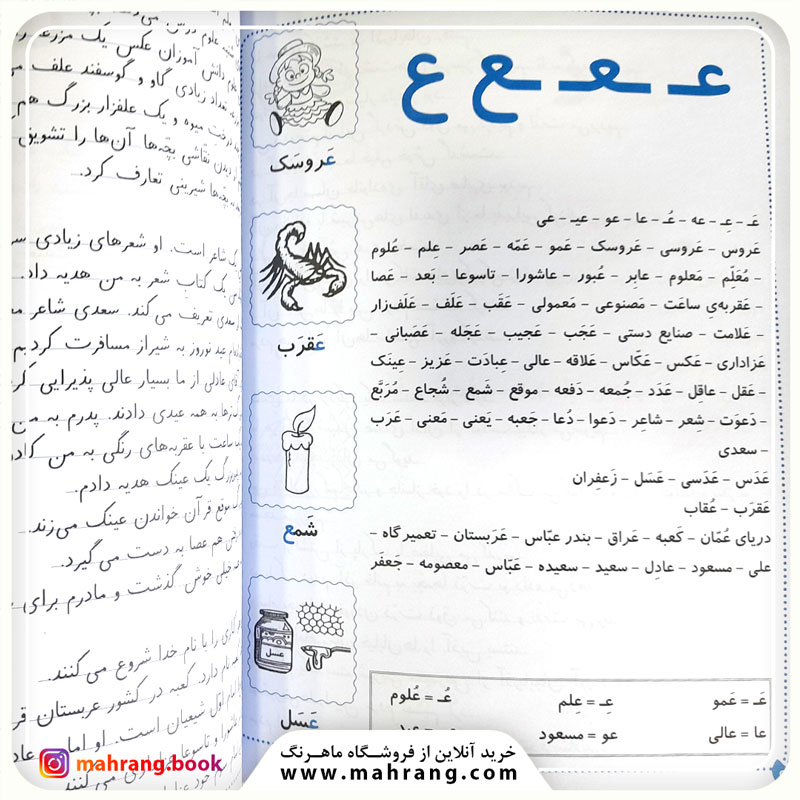 عـ ـعـ ـع ع
عَروسَک
عَقرَب
شَمع
عسل
عَسَل
عَـ – عِـ – عه – عُـ – عا – عو – عیـ – عی
عَروس – عَروسی – عَروسک – عَمو – عَمّه – عَصر – عِلم – عُلوم
– مُعَلّم – مَعلوم – عابِر – عُبور – عاشورا – تاسوعا – بَعد – عَصا
– عَقربه‌یِ ساعَت – مَصنوعی – مَعمولی – عَقَب – عَلَف – عَلَف‌زار
– عَلامت – صنایع دستی – عَجَب – عَجیب – عَجَله – عَصَبانی –
عَزاداری – عَکس – عَکّاس – عَلاقه – عالی – عِبادَت – عَزیز – عینک
– عَقل – عاقِل – عَدَد – جُمعه – دَفعه – موقع – شَمع – شُجاع – مُرَبَّع
– دَعوَت – شِعر – شاعِر – دَعوا – دُعا – جَعبه – یَعنی – مَعنی – عَرَب
– سعدی
عَدَس – عَدَسی – عَسَل – زَعفِران
عَقرَب – عُقاب
دریای عُمّان – کَعبه – عَراق – بندر عبّاس – عَرَبستان – تعمیرگاه –
علی – مسعود – عادِل – سعید – سعیده – عَبّاس – معصومه – جعفَر
عَـ = عَمو عِـ = عِلم عُـ = عُلوم
عا = عالی عو = مسعود
دانش آموزان عکس یک مزرعه
تعداد زیادی گاو و گوسفند علف
میوه و یک علفزار بزرگ هم
نقاشی بچّه‌ها آن‌ها را تشویق
بچّه‌ها شیرینی تعارف کرد.
شاعر است. او شعرهای زیادی
یک کتاب شعر به من هدیه داد.
سعدی تعریف می کند. سعدی شاعر
عید نوروز به شیراز مسافرت کردیم
آقای عادلی از ما بسیار عالی پذیرایی
به همه عیدی دادند. پدرم به من
ساعت با عقربه‌های رنگی به من
یک عینک هدیه دادم.
موقع قرآن خواندن عینک می‌زند.
هم عصا به دست می گیرد.
خیلی خوش گذشت و مادرم برای
را با نام خدا شروع می کنند.
نام دارد. کعبه در کشور عربستان
امام اوّل شیعیان است. او امام
و تاسوعا
خرید آنلاین از فروشگاه ماهرنگ
www.mahrang.com
mahrang.book